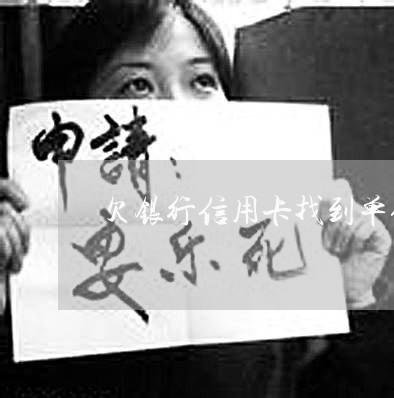 申請：
欠銀行信用卡找到单
安乐死